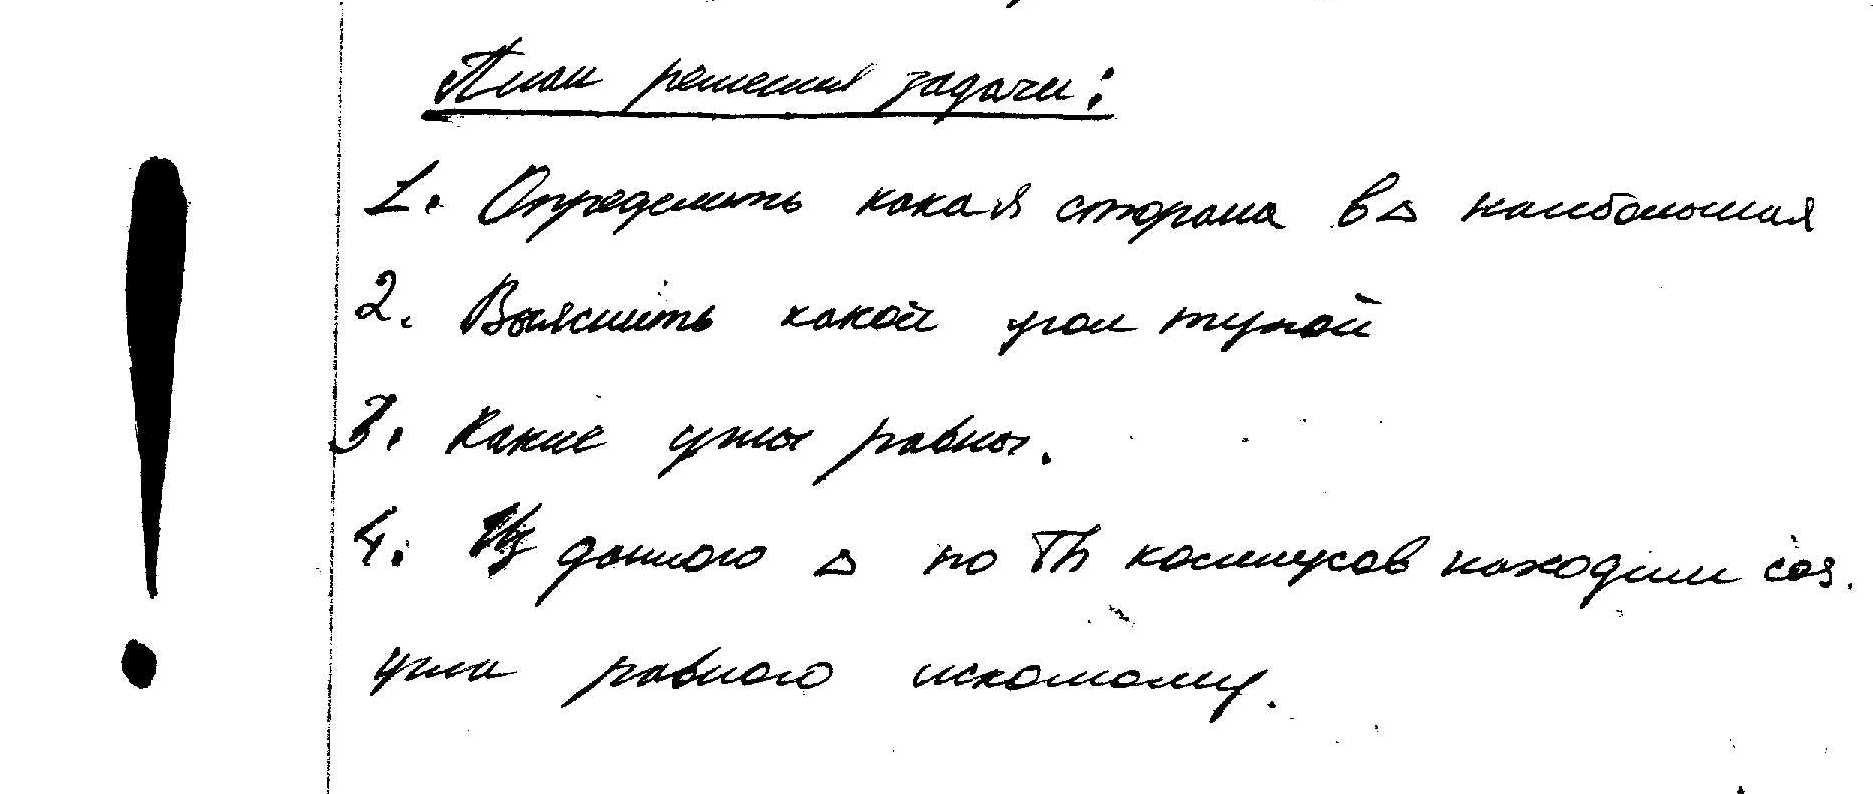 План решения задачи:
1. Определить какая сторона в △ наибольшая
2. Выяснить какой угол тупой
3. Какие углы равны.
4. Из данного △ по Th косинусов находим cos.
угла равного искомому.